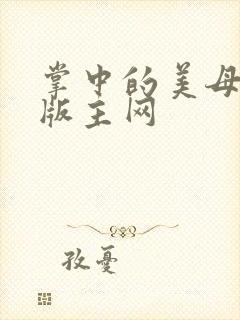 掌中的美母
版主网
孜忧